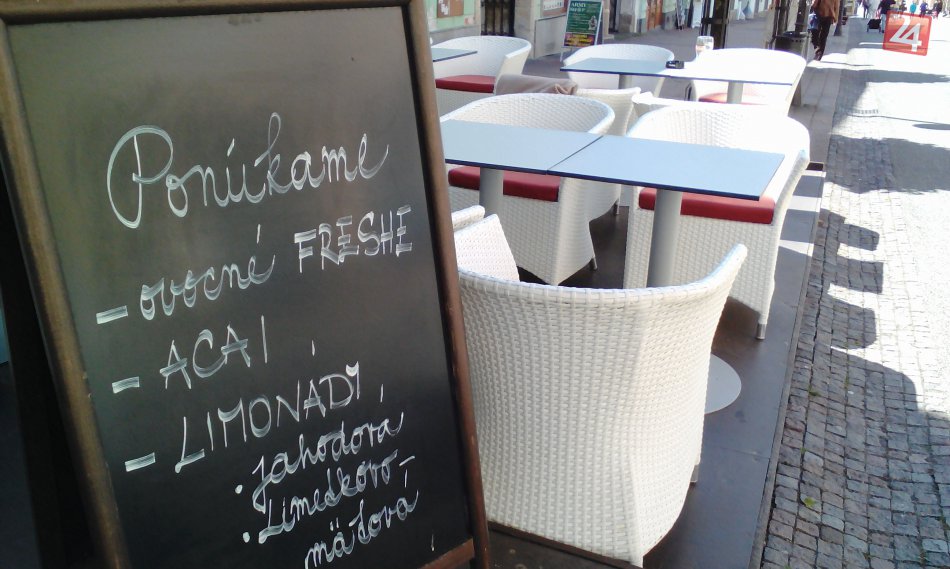 Ponúkame
- ovocné FRESHE
- ACAI
- LIMONÁDY,
• jahodová
• Limetkovo-
mätová
24